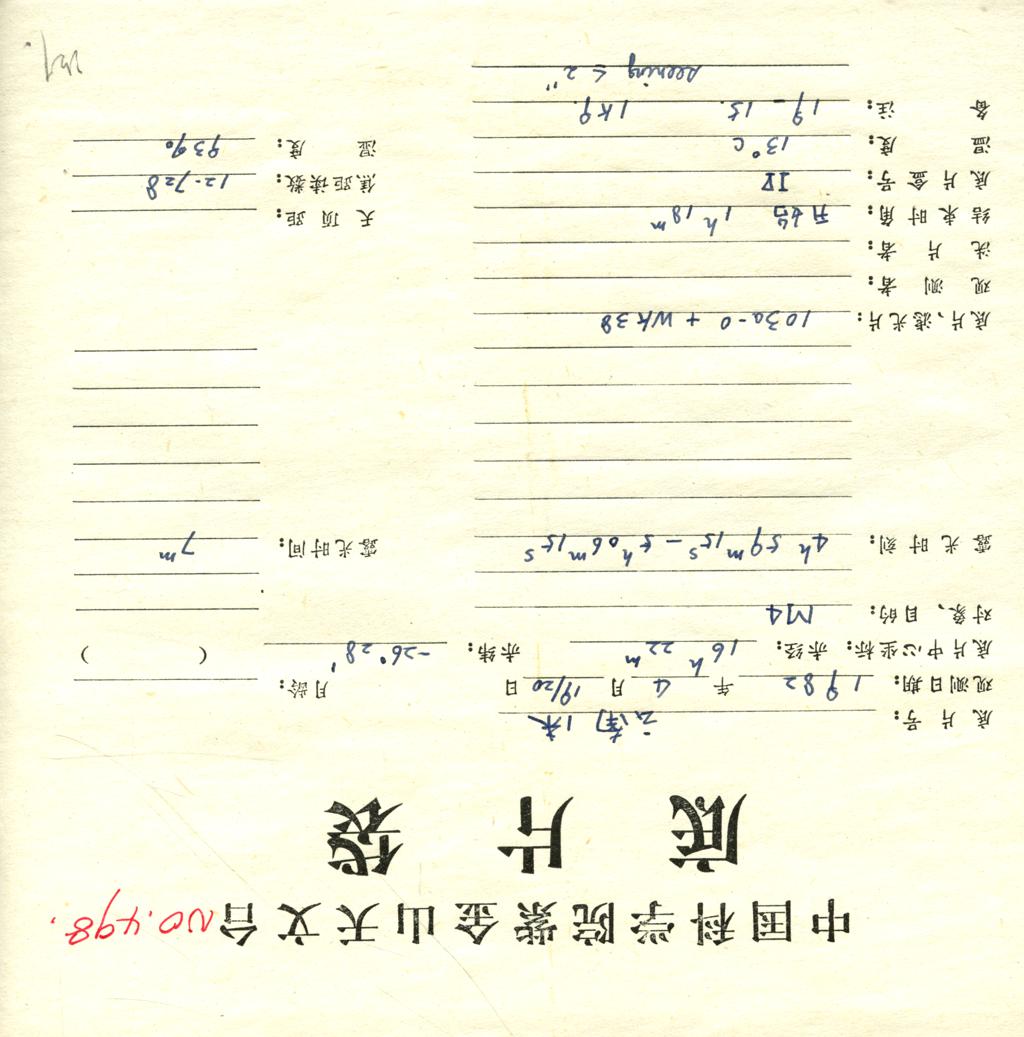 中国科学院紫金山天文台 NO.498.
底片袋
底片号: 云南1米
观测日期: 1982年4月19/20日 月龄:
底片中心坐标: 赤经: 16h 22m 赤纬: -26°28′ ( )
对象、目的: M4
露光时刻: 4h 59m 15s - 5h 06m 15s 露光时间: 7m
底片、滤光片: 103a-O + WK38
观测者:
洗片者:
结束时角: 开始 1h 18m 天顶距:
底片盒号: IV 焦距读数: 12.728
温度: 13°C 湿度: 93%
备注: 19-15. 1K9.
seening ≤ 2"